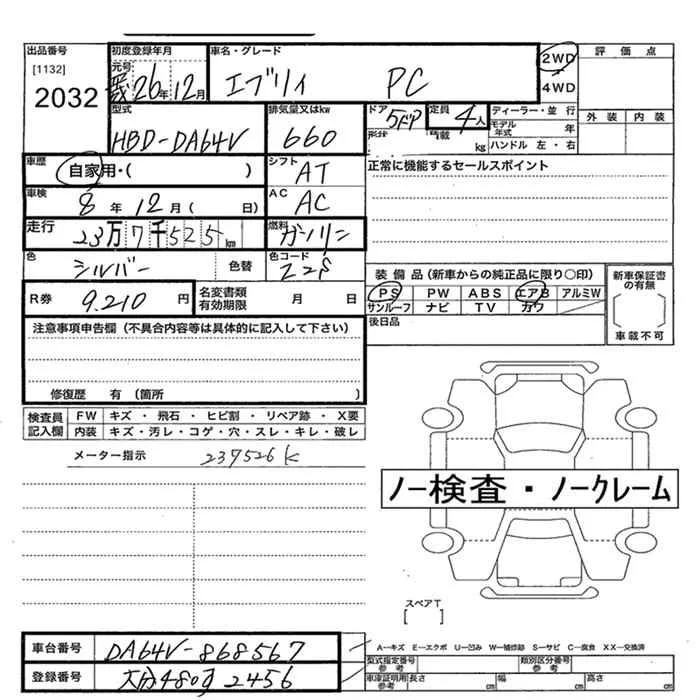 出品番号 初度登録年月 車名・グレード 2WD 評価点
[1132] 元号
2032 26年 12月 エブリィ PC 4WD
型式 排気量又はkw ドア 定員 ディーラー・並行 外装 内装
HBD-DA64V 660 5ドア 4人 モデル年式 年
形状 積載 kg ハンドル 左・右
車歴 自家用・( ) シフト AT 正常に機能するセールスポイント
車検 8年 12月( 日) AC AC
走行 23万7千525km 燃料 ガソリン
色 シルバー 色替 色コード Z2S 装備品(新車からの純正品に限り○印) 新車保証書の有無
R券 9.210円 名変書類有効期限 月 日 PS PW ABS エアB アルミW
サンルーフ ナビ TV カワ
[ ]
注意事項申告欄(不具合内容等は具体的に記入して下さい) 後日品 車載不可
修復歴 有(箇所 )
検査員記入欄 FW キズ・飛石・ヒビ割・リペア跡・X要
内装 キズ・汚レ・コゲ・穴・スレ・キレ・破レ
メーター指示 237526k
ノー検査・ノークレーム
スペアT
[ ]
車台番号 DA64V-868567 A−キズ E−エクボ U−凹み W−補修跡 S−サビ C−腐食 XX−交換済
型式指定番号 参考 類別区分番号 参考
登録番号 大分480す2456 車庫証明用 参考 長さ cm 幅 cm 高さ cm